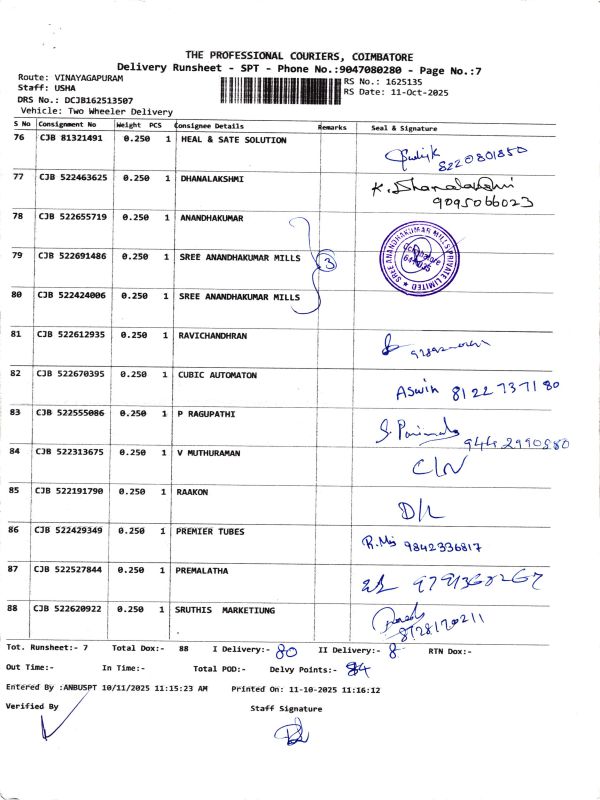 THE PROFESSIONAL COURIERS, COIMBATORE
Delivery Runsheet - SPT - Phone No.:9047080280 - Page No.:7
Route: VINAYAGAPURAM RS No.: 1625135
Staff: USHA RS Date: 11-Oct-2025
DRS No.: DCJB162513507
Vehicle: Two Wheeler Delivery
S No Consignment No Weight PCS Consignee Details Remarks Seal & Signature
76 CJB 81321491 0.250 1 HEAL & SATE SOLUTION 8220801850
77 CJB 522463625 0.250 1 DHANALAKSHMI K. Dhanalakshmi
9095066023
78 CJB 522655719 0.250 1 ANANDHAKUMAR
79 CJB 522691486 0.250 1 SREE ANANDHAKUMAR MILLS 3 SREE ANANDHAKUMAR MILLS PRIVATE LIMITED
80 CJB 522424006 0.250 1 SREE ANANDHAKUMAR MILLS
81 CJB 522612935 0.250 1 RAVICHANDHRAN
82 CJB 522670395 0.250 1 CUBIC AUTOMATON Aswin 8122737180
83 CJB 522555086 0.250 1 P RAGUPATHI 9442990580
84 CJB 522313675 1 V MUTHURAMAN C/N
0.250
85 CJB 522191790 0.250 1 RAAKON D/L
86 CJB 522429349 0.250 1 PREMIER TUBES 9842336817
87 CJB 522527844 0.250 1 PREMALATHA
88 CJB 522620922 0.250 1 SRUTHIS MARKETIUNG
Tot. Runsheet:- 7 Total Dox:- 88 I Delivery:- 80 II Delivery:- 8 RTN Dox:-
Out Time:- In Time:- Total POD:- Delvy Points:- 84
Entered By :ANBUSPT 10/11/2025 11:15:23 AM Printed On: 11-10-2025 11:16:12
Verified By Staff Signature